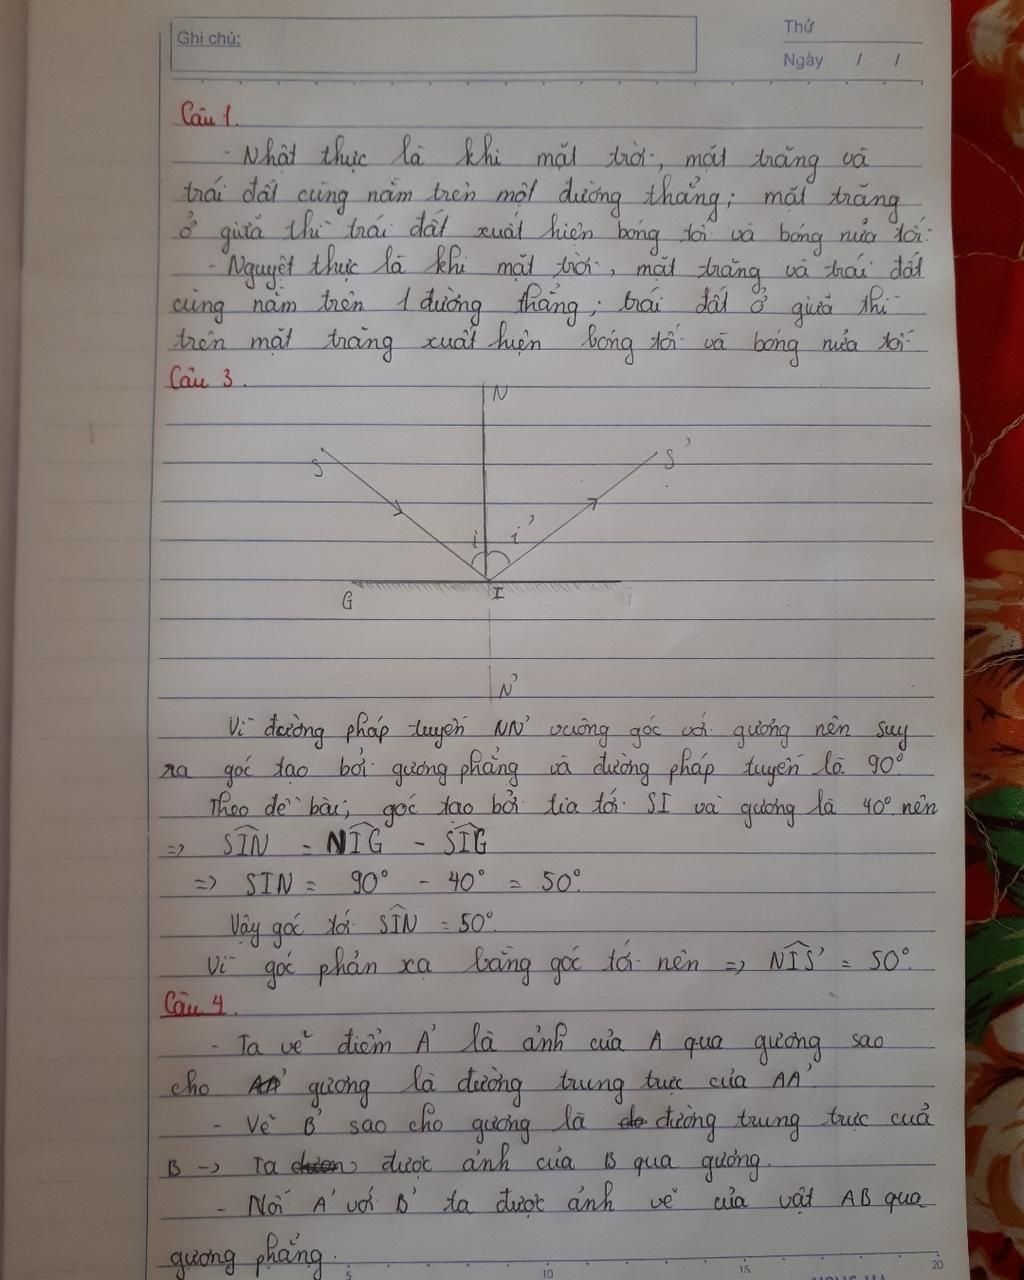 Ghi chú:
Thứ
Ngày / /
Câu 1.
- Nhật thực là khi mặt trời, mặt trăng và
trái đất cùng nằm trên một đường thẳng; mặt trăng
ở giữa thì trái đất xuất hiện bóng tối và bóng nửa tối.
- Nguyệt thực là khi mặt trời, mặt trăng và trái đất
cùng nằm trên 1 đường thẳng; trái đất ở giữa thì
trên mặt trăng xuất hiện bóng tối và bóng nửa tối
Câu 3.
N
S S'
i i'
G I G
N'
Vì đường pháp tuyến NN' vuông góc với gương nên suy
ra góc tạo bởi gương phẳng và đường pháp tuyến là 90°
Theo đề bài; góc tạo bởi tia tới SI và gương là 40° nên
=> SIN = NIG - SIG
=> SIN = 90° - 40° = 50°.
Vậy góc tới SIN = 50°.
Vì góc phản xạ bằng góc tới nên => NIS' = 50°.
Câu 4.
- Ta vẽ điểm A' là ảnh của A qua gương sao
cho AA' gương là đường trung trực của AA'.
- Vẽ B' sao cho gương là đường trung trực cuả
B -> Ta được ảnh của B qua gương.
- Nối A' với B' ta được ảnh vẽ của vật AB qua
gương phẳng.
5 10 15 20